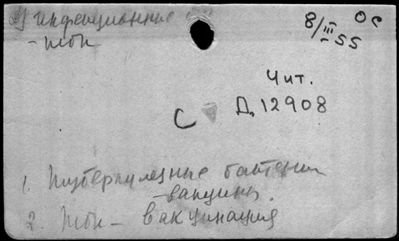 инфекционные
8/III-55 ОС
-твс
Чит.
Д. 12908
С
1. Туберкулезные бактерии
-вакцины.
2. Твс - вакцинация